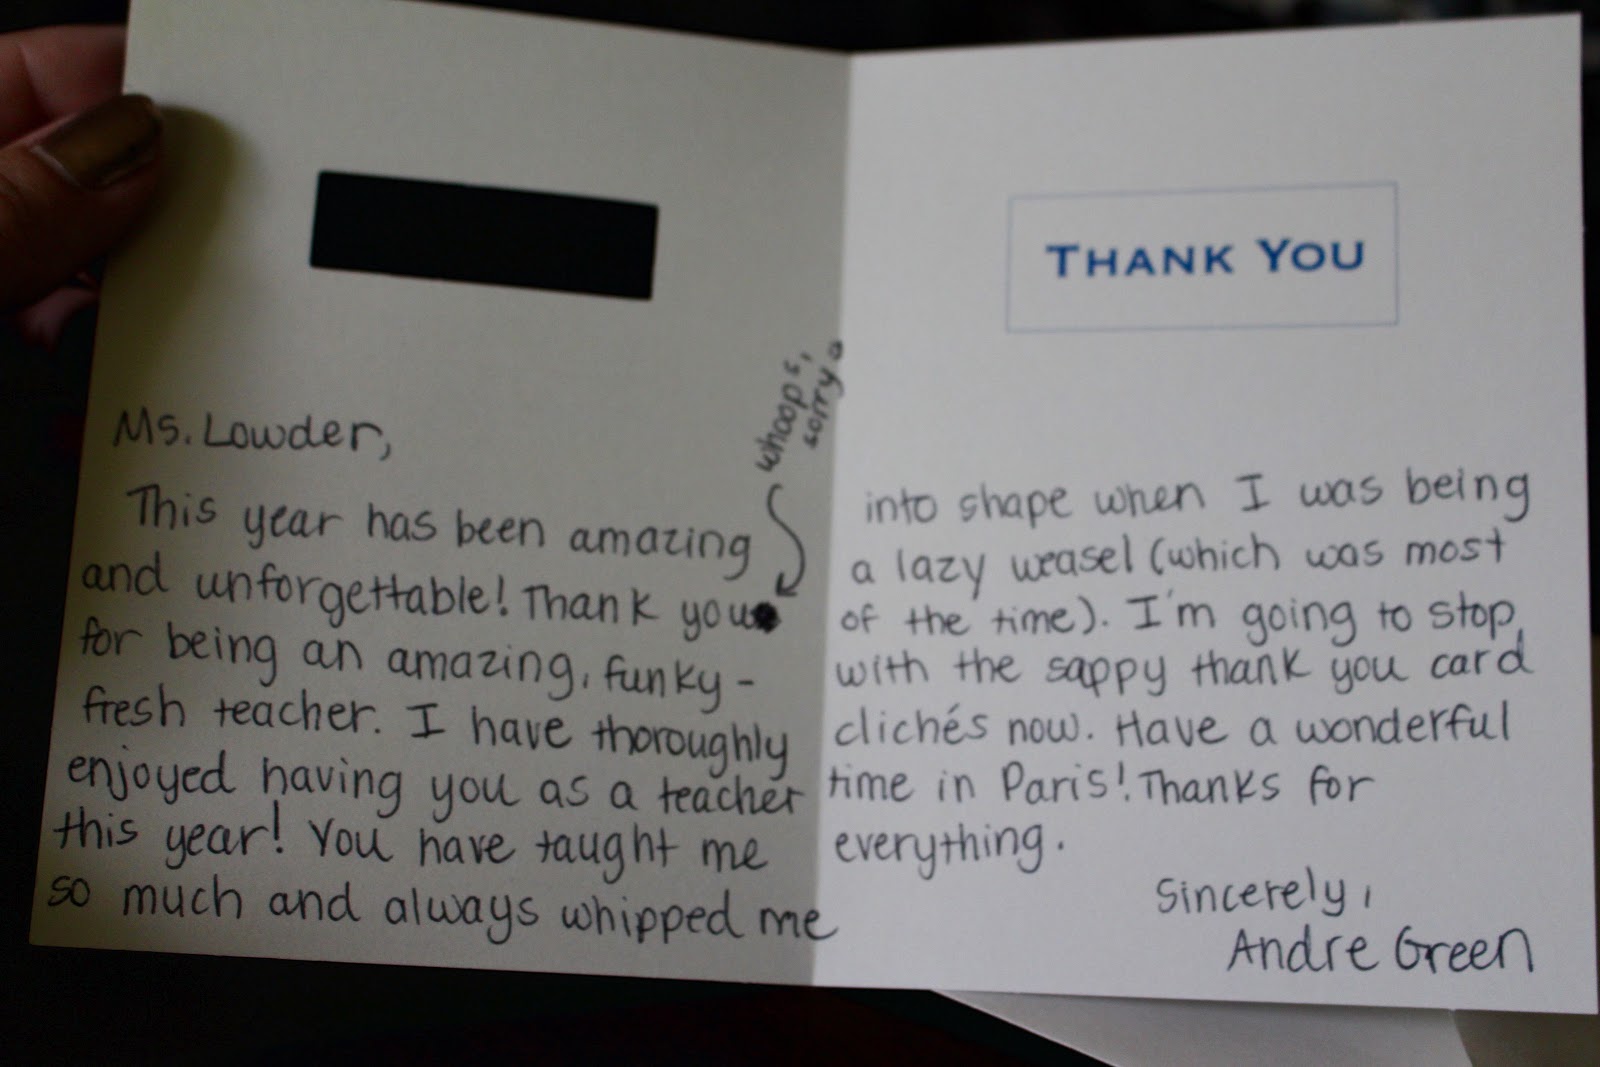 whoops,
sorry
Ms. Lowder,
This year has been amazing
and unforgettable! Thank you
for being an amazing, funky-
fresh teacher. I have thoroughly
enjoyed having you as a teacher
this year! You have taught me
so much and always whipped me
THANK YOU
into shape when I was being
a lazy weasel (which was most
of the time). I'm going to stop
with the sappy thank you card
clichés now. Have a wonderful
time in Paris! Thanks for
everything.
Sincerely,
Andre Green